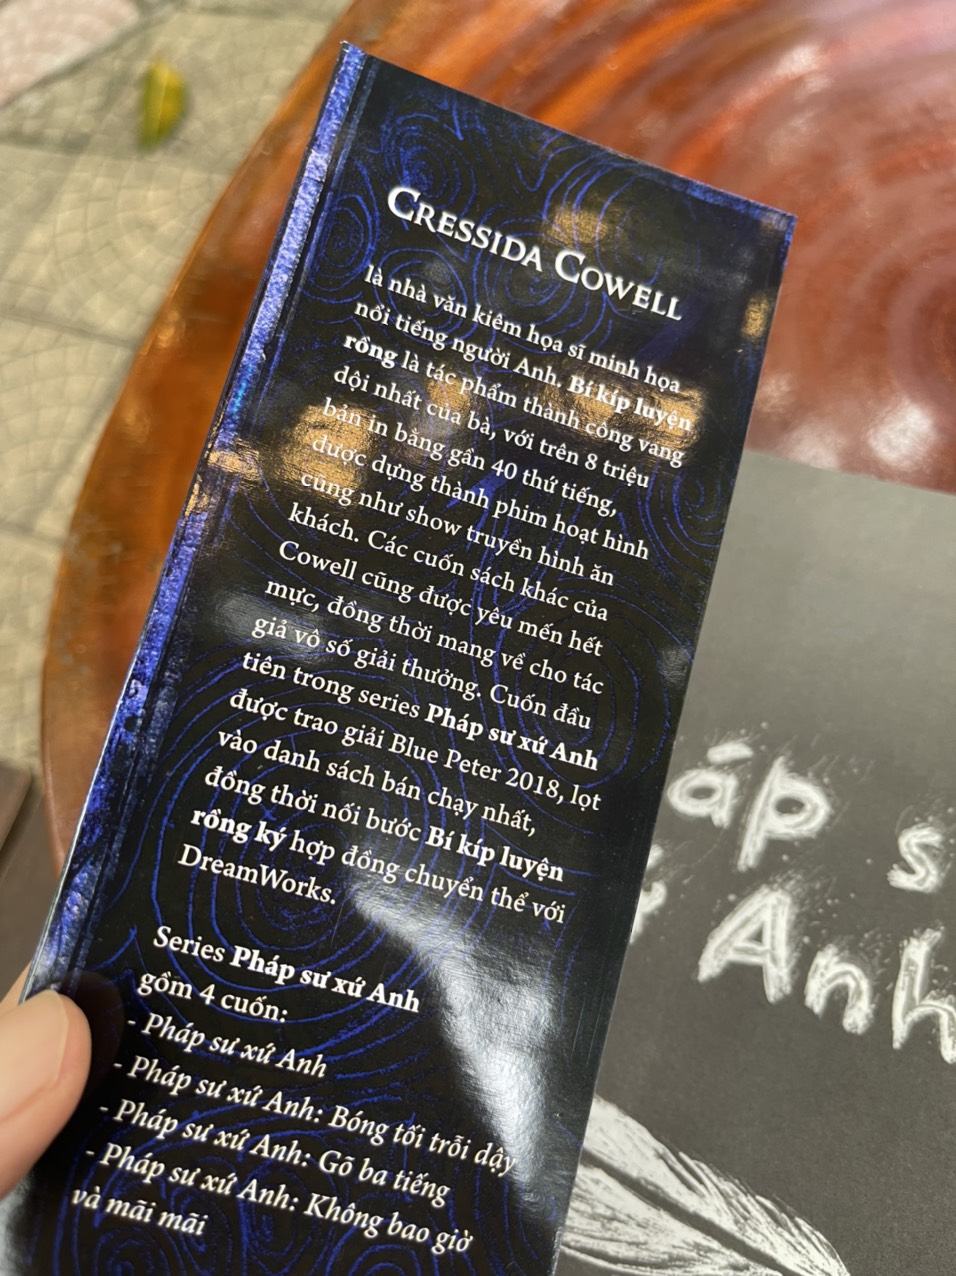 CRESSIDA COWELL
là nhà văn kiêm họa sĩ minh họa
nổi tiếng người Anh. Bí kíp luyện
rồng là tác phẩm thành công vang
dội nhất của bà, với trên 8 triệu
bản in bằng gần 40 thứ tiếng,
được dựng thành phim hoạt hình
cũng như show truyền hình ăn
khách. Các cuốn sách khác của
Cowell cũng được yêu mến hết
mực, đồng thời mang về cho tác
giả vô số giải thưởng. Cuốn đầu
tiên trong series Pháp sư xứ Anh
được trao giải Blue Peter 2018, lọt
vào danh sách bán chạy nhất,
đồng thời nối bước Bí kíp luyện
rồng ký hợp đồng chuyển thể với
DreamWorks.
Series Pháp sư xứ Anh
gồm 4 cuốn:
- Pháp sư xứ Anh
- Pháp sư xứ Anh: Bóng tối trỗi dậy
- Pháp sư xứ Anh: Gõ ba tiếng
- Pháp sư xứ Anh: Không bao giờ
và mãi mãi
áp s
Anh